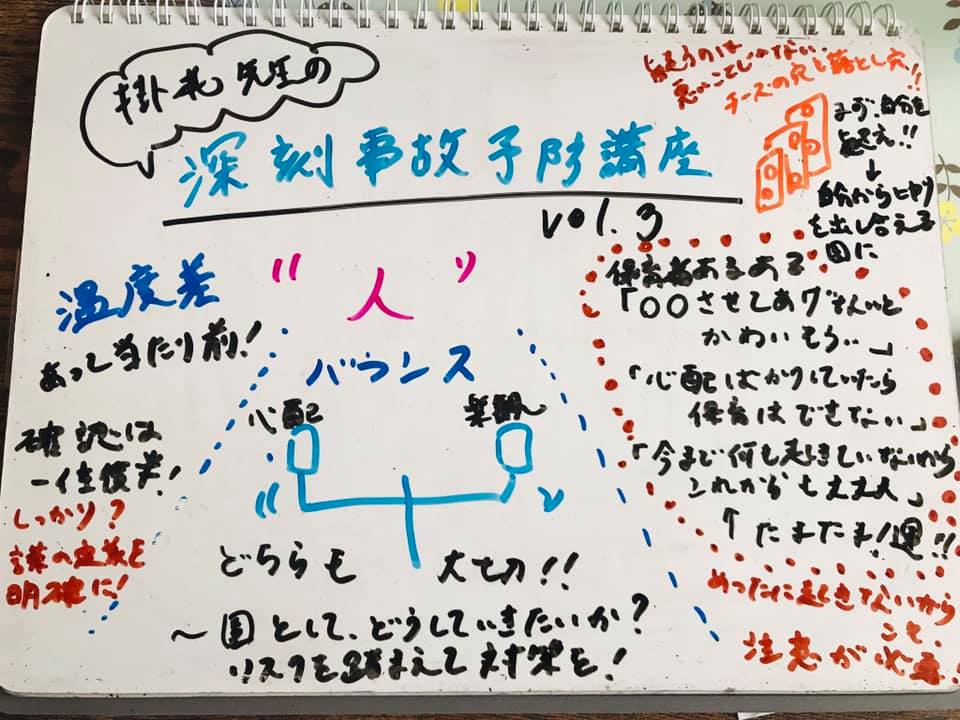 掛札先生の
深刻事故予防講座
vol.3
疑うのは
悪いことじゃない
チーズの穴と落とし穴!!
まず、自分を
疑え!!
↓
自分からヒヤリ
を出し合える
園に
温度差
あって当たり前!
確認は
一往復半!
しっかり?
言葉の定義を
明確に!
"人"
バランス
心配
楽観
どちらも 大切!!
~園として、どうしていきたいか?
リスクを踏まえて対策を!
保育者あるある
「〇〇させてあげないと
かわいそう..」
「心配ばかりしていたら
保育はできない」
「今まで何も起きていないから
これからも大丈夫」
↑たまたま!運!!
めったに起きないから
こそ、
注意が必要